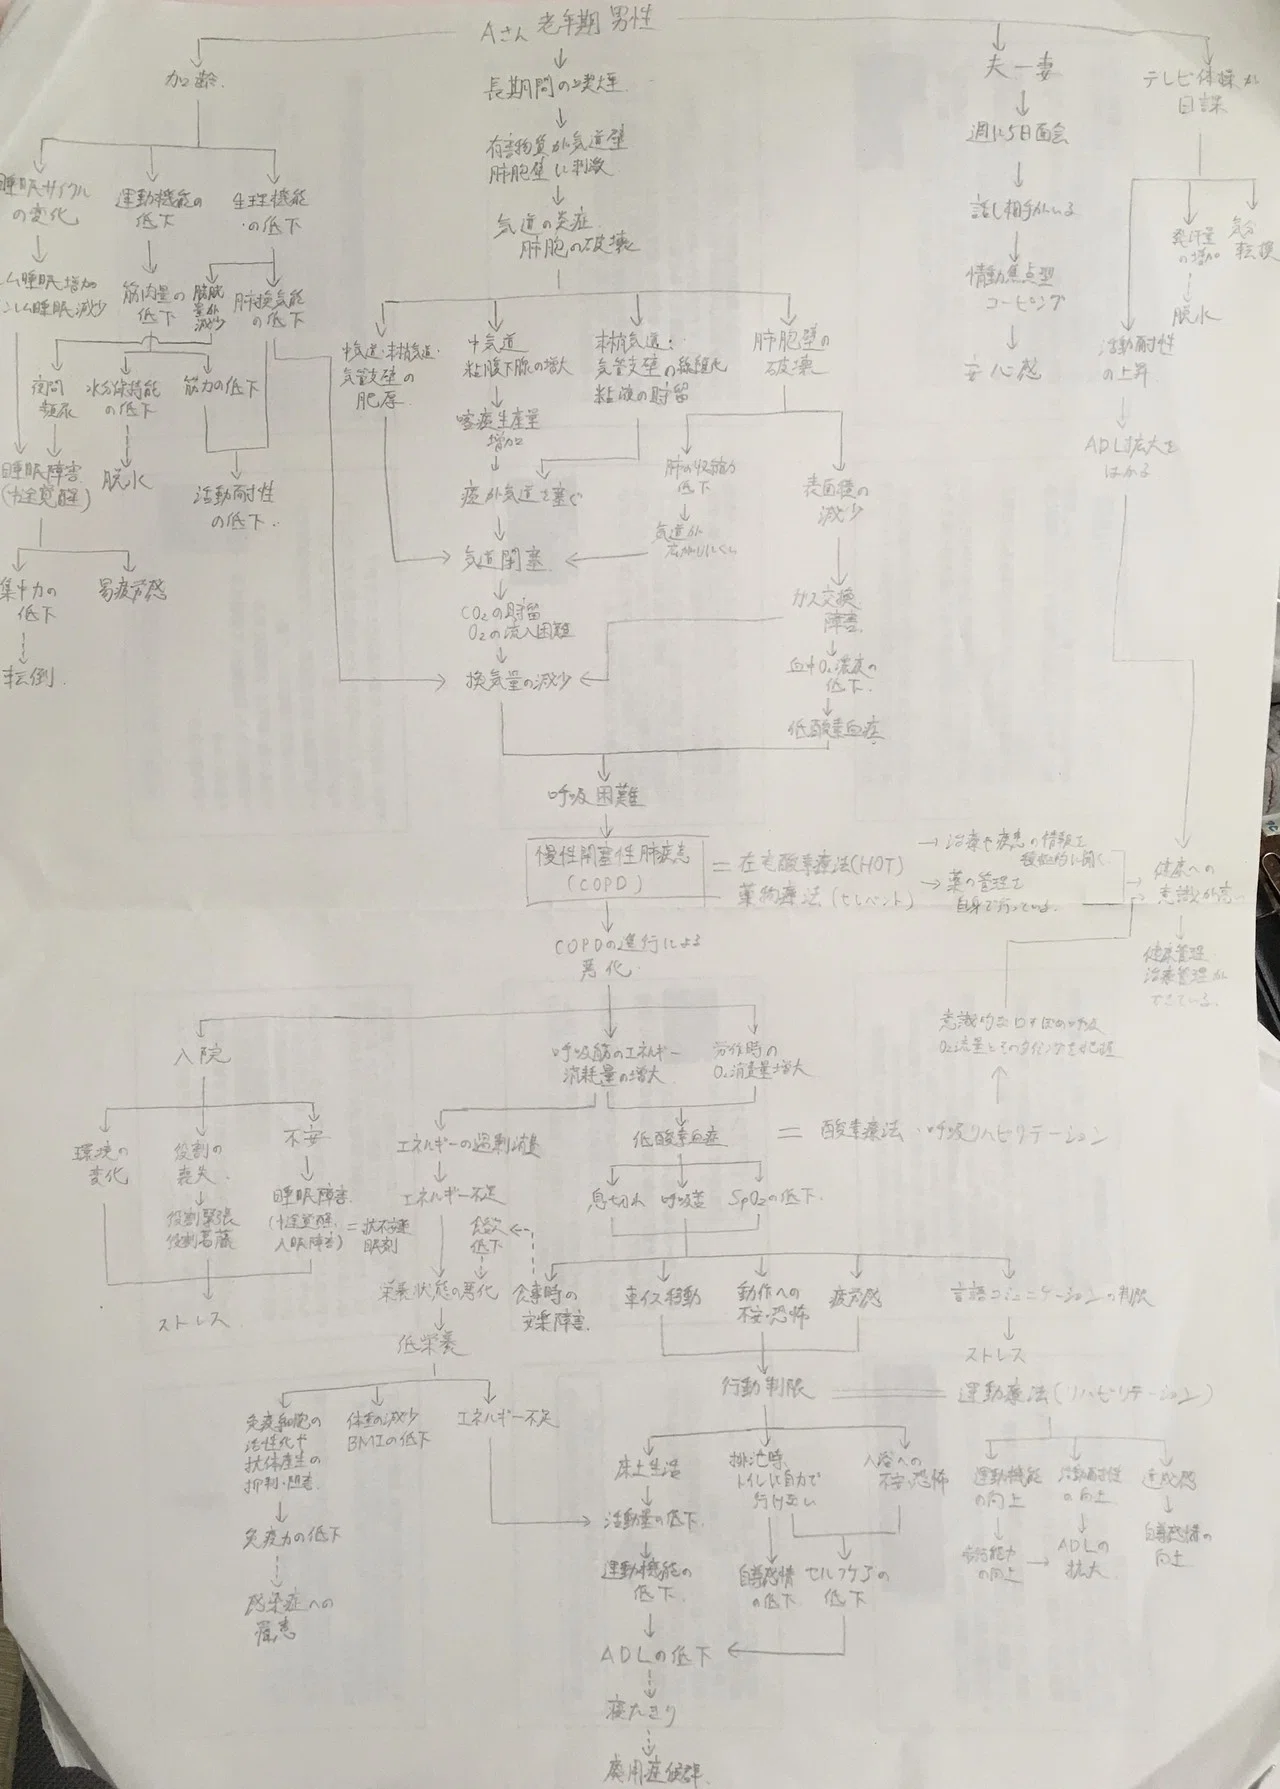 Aさん 老年期 男性
加齢
長期間の喫煙
夫ー妻
テレビ体操が
日課
有害物質が気道壁
肺胞壁に刺激
週に5日面会
睡眠サイクル
の変化
運動機能の
低下
生理機能
の低下
気道の炎症
肺胞の破壊
話し相手がいる
発汗量
の増加
気分
転換
脱水
レム睡眠増加
ンレム睡眠減少
筋肉量の
低下
膀胱
量が
減少
肺換気能
の低下
情動焦点型
コーピング
中気道・末梢気道・
気管支壁の
肥厚
中気道
粘膜下腺の増大
末梢気道:
気管支壁の線維化
粘液の貯留
肺胞壁の
破壊
安心感
活動耐性
の上昇
夜間
頻尿
水分保持能
の低下
筋力の低下
喀痰生産量
増加
ADL拡大を
はかる
睡眠障害
(中途覚醒)
脱水
活動耐性
の低下
痰が気道を塞ぐ
肺の収縮力
低下
表面積の
減少
気道閉塞
気道が
広がりにくい
集中力の
低下
易疲労感
CO₂の貯留
O₂の流入困難
ガス交換
障害
転倒
換気量の減少
血中O₂濃度の
低下
低酸素血症
呼吸困難
慢性閉塞性肺疾患
(COPD)
= 在宅酸素療法(HOT)
薬物療法(セレベント)
→治療や疾患の情報を
積極的に聞く
→薬の管理を
自身で行っている。
健康への
意識が高い
COPDの進行による
悪化
健康管理
治療管理が
できている。
意識的な口すぼめ呼吸
O₂流量とそのタイミングを把握
入院
呼吸筋のエネルギー
消耗量の増大
労作時の
O₂消費量増大
環境の
変化
役割の
喪失
不安
エネルギーの過剰消費
低酸素血症
= 酸素療法・呼吸リハビリテーション
役割緊張
役割葛藤
睡眠障害
(中途覚醒、
入眠障害)
= 抗不安薬
眠剤
エネルギー不足
食欲
低下
息切れ
呼吸苦
SpO₂の低下
ストレス
栄養状態の悪化
食事時の
安楽障害
車イス移動
動作への
不安・恐怖
疲労感
言語コミュニケーションの制限
低栄養
ストレス
行動制限
運動療法(リハビリテーション)
免疫細胞の
活性化や
抗体産生の
抑制・阻害
体重の減少
BMIの低下
エネルギー不足
床上生活
排泄時、
トイレに自力で
行けない
入浴への
不安・恐怖
運動機能
の向上
活動耐性
の向上
達成感
免疫力の低下
活動量の低下
ADLの
拡大
自尊感情の
向上
感染症への
罹患
運動機能の
低下
自尊感情
の低下
セルフケアの
低下
ADLの低下
寝たきり
廃用症候群